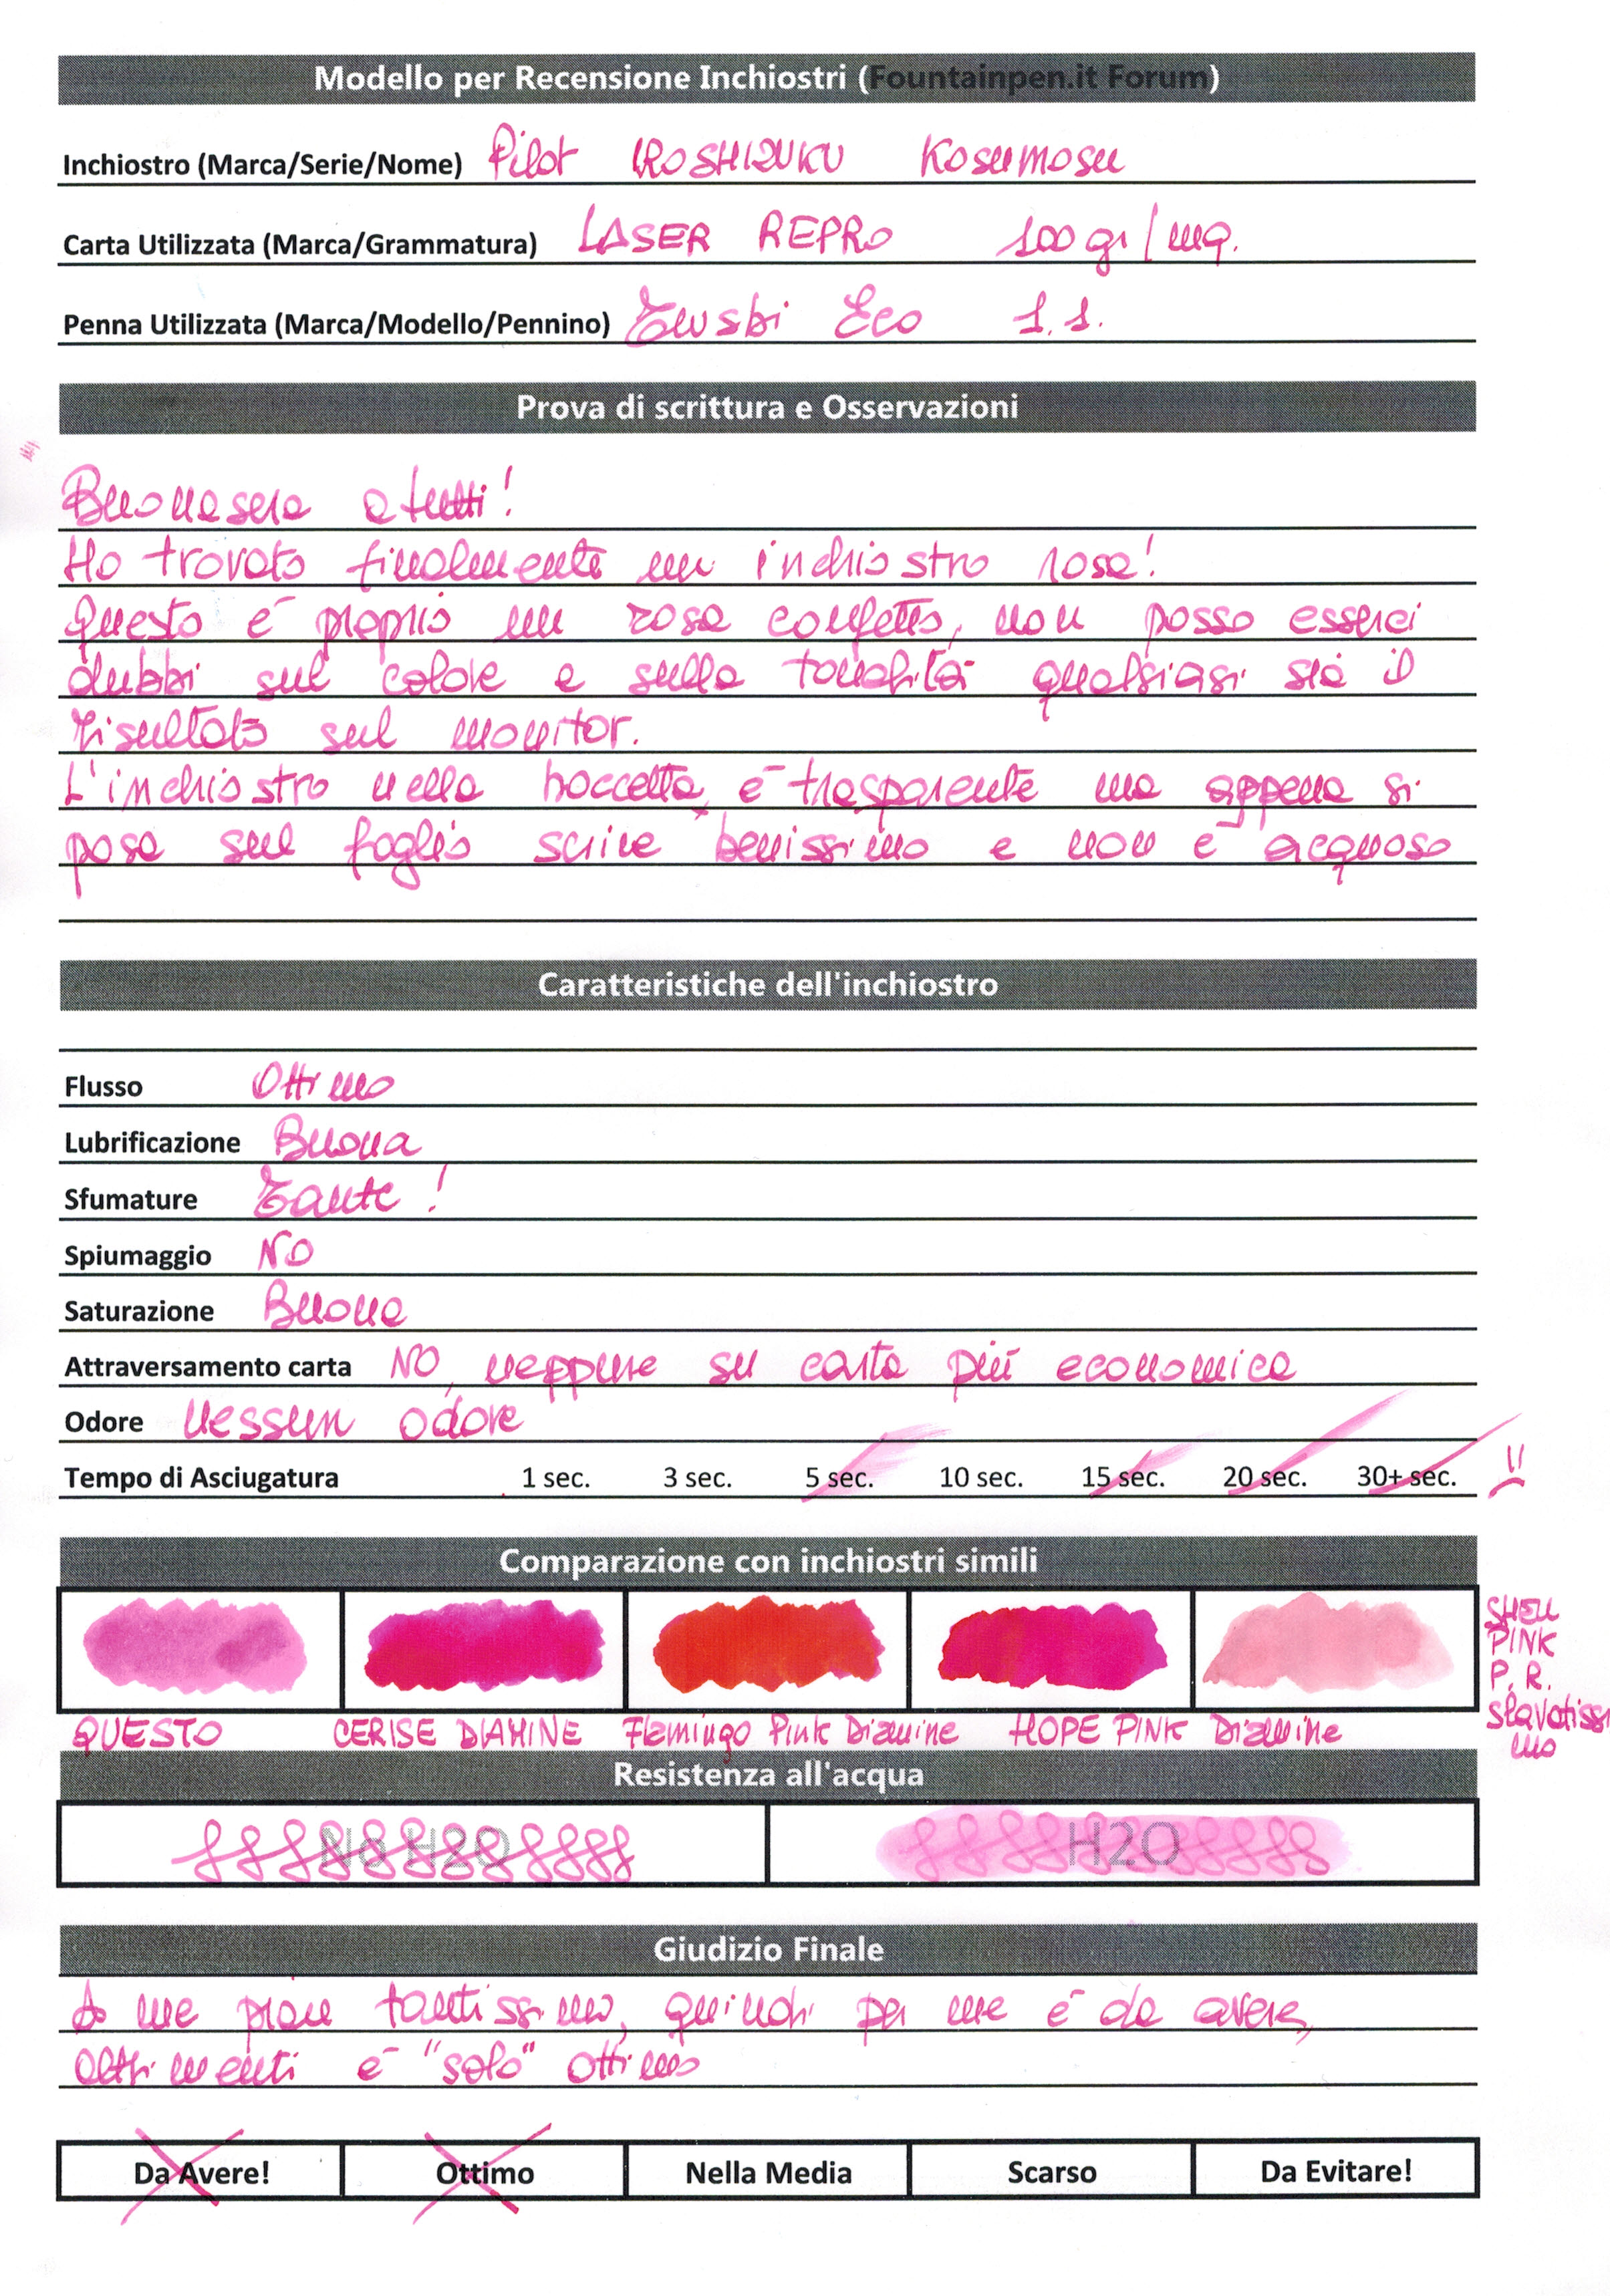 Modello per Recensione Inchiostri (Fountainpen.it Forum)
Inchiostro (Marca/Serie/Nome) Pilot IROSHIZUKU Kosumosu
Carta Utilizzata (Marca/Grammatura) LASER REPRO 100 gr/mq.
Penna Utilizzata (Marca/Modello/Pennino) Twsbi Eco 1.1.
Prova di scrittura e Osservazioni
Buonasera a tutti!
Ho trovato finalmente un inchiostro rosa!
Questo è proprio un rosa confetto, non posso esserci
dubbi sul colore e sulla tonalità qualsiasi sia il
risultato sul monitor.
L'inchiostro nella boccetta, è trasparente ma appena si
posa sul foglio scrive benissimo e non è acquoso
Caratteristiche dell'inchiostro
Flusso Ottimo
Lubrificazione Buona
Sfumature Tante!
Spiumaggio NO
Saturazione Buona
Attraversamento carta NO, neppure su carta più economica
Odore Nessun odore
Tempo di Asciugatura 1 sec. 3 sec. 5 sec. 10 sec. 15 sec. 20 sec. 30+ sec.
Comparazione con inchiostri simili
QUESTO CERISE DIAMINE Flamingo Pink Diamine HOPE PINK Diamine
SHELL
PINK
P.R.
slavatissi
mo
Resistenza all'acqua
No H2O H2O
Giudizio Finale
A me piace tantissimo, quindi per me è da avere,
altrimenti è "solo" ottimo
Da Avere! Ottimo Nella Media Scarso Da Evitare!